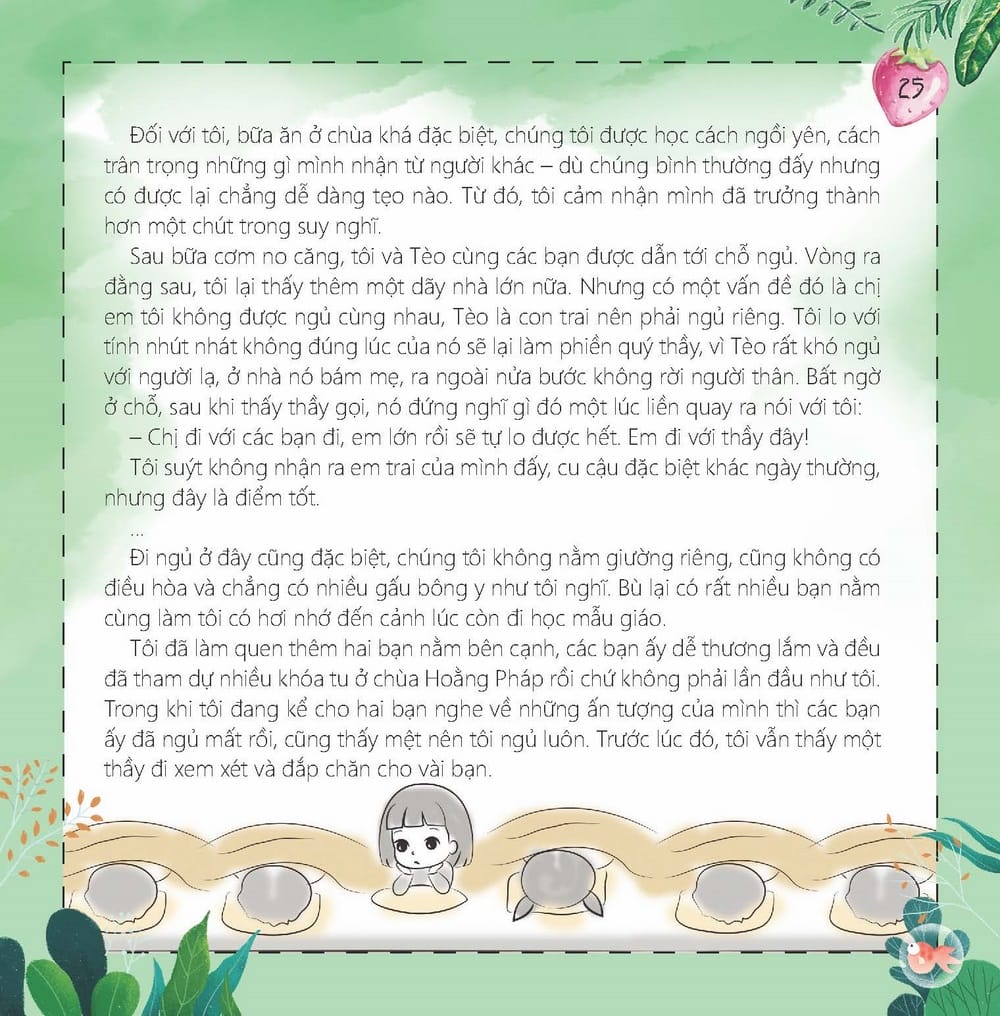 25
Đối với tôi, bữa ăn ở chùa khá đặc biệt, chúng tôi được học cách ngồi yên, cách
trân trọng những gì mình nhận từ người khác – dù chúng bình thường đấy nhưng
có được lại chẳng dễ dàng tẹo nào. Từ đó, tôi cảm nhận mình đã trưởng thành
hơn một chút trong suy nghĩ.
Sau bữa cơm no căng, tôi và Tèo cùng các bạn được dẫn tới chỗ ngủ. Vòng ra
đằng sau, tôi lại thấy thêm một dãy nhà lớn nữa. Nhưng có một vấn đề đó là chị
em tôi không được ngủ cùng nhau, Tèo là con trai nên phải ngủ riêng. Tôi lo với
tính nhút nhát không đúng lúc của nó sẽ lại làm phiền quý thầy, vì Tèo rất khó ngủ
với người lạ, ở nhà nó bám mẹ, ra ngoài nửa bước không rời người thân. Bất ngờ
ở chỗ, sau khi thấy thầy gọi, nó đứng nghĩ gì đó một lúc liền quay ra nói với tôi:
– Chị đi với các bạn đi, em lớn rồi sẽ tự lo được hết. Em đi với thầy đây!
Tôi suýt không nhận ra em trai của mình đấy, cu cậu đặc biệt khác ngày thường,
nhưng đây là điểm tốt.
...
Đi ngủ ở đây cũng đặc biệt, chúng tôi không nằm giường riêng, cũng không có
điều hòa và chẳng có nhiều gấu bông y như tôi nghĩ. Bù lại có rất nhiều bạn nằm
cùng làm tôi có hơi nhớ đến cảnh lúc còn đi học mẫu giáo.
Tôi đã làm quen thêm hai bạn nằm bên cạnh, các bạn ấy dễ thương lắm và đều
đã tham dự nhiều khóa tu ở chùa Hoằng Pháp rồi chứ không phải lần đầu như tôi.
Trong khi tôi đang kể cho hai bạn nghe về những ấn tượng của mình thì các bạn
ấy đã ngủ mất rồi, cũng thấy mệt nên tôi ngủ luôn. Trước lúc đó, tôi vẫn thấy một
thầy đi xem xét và đắp chăn cho vài bạn.